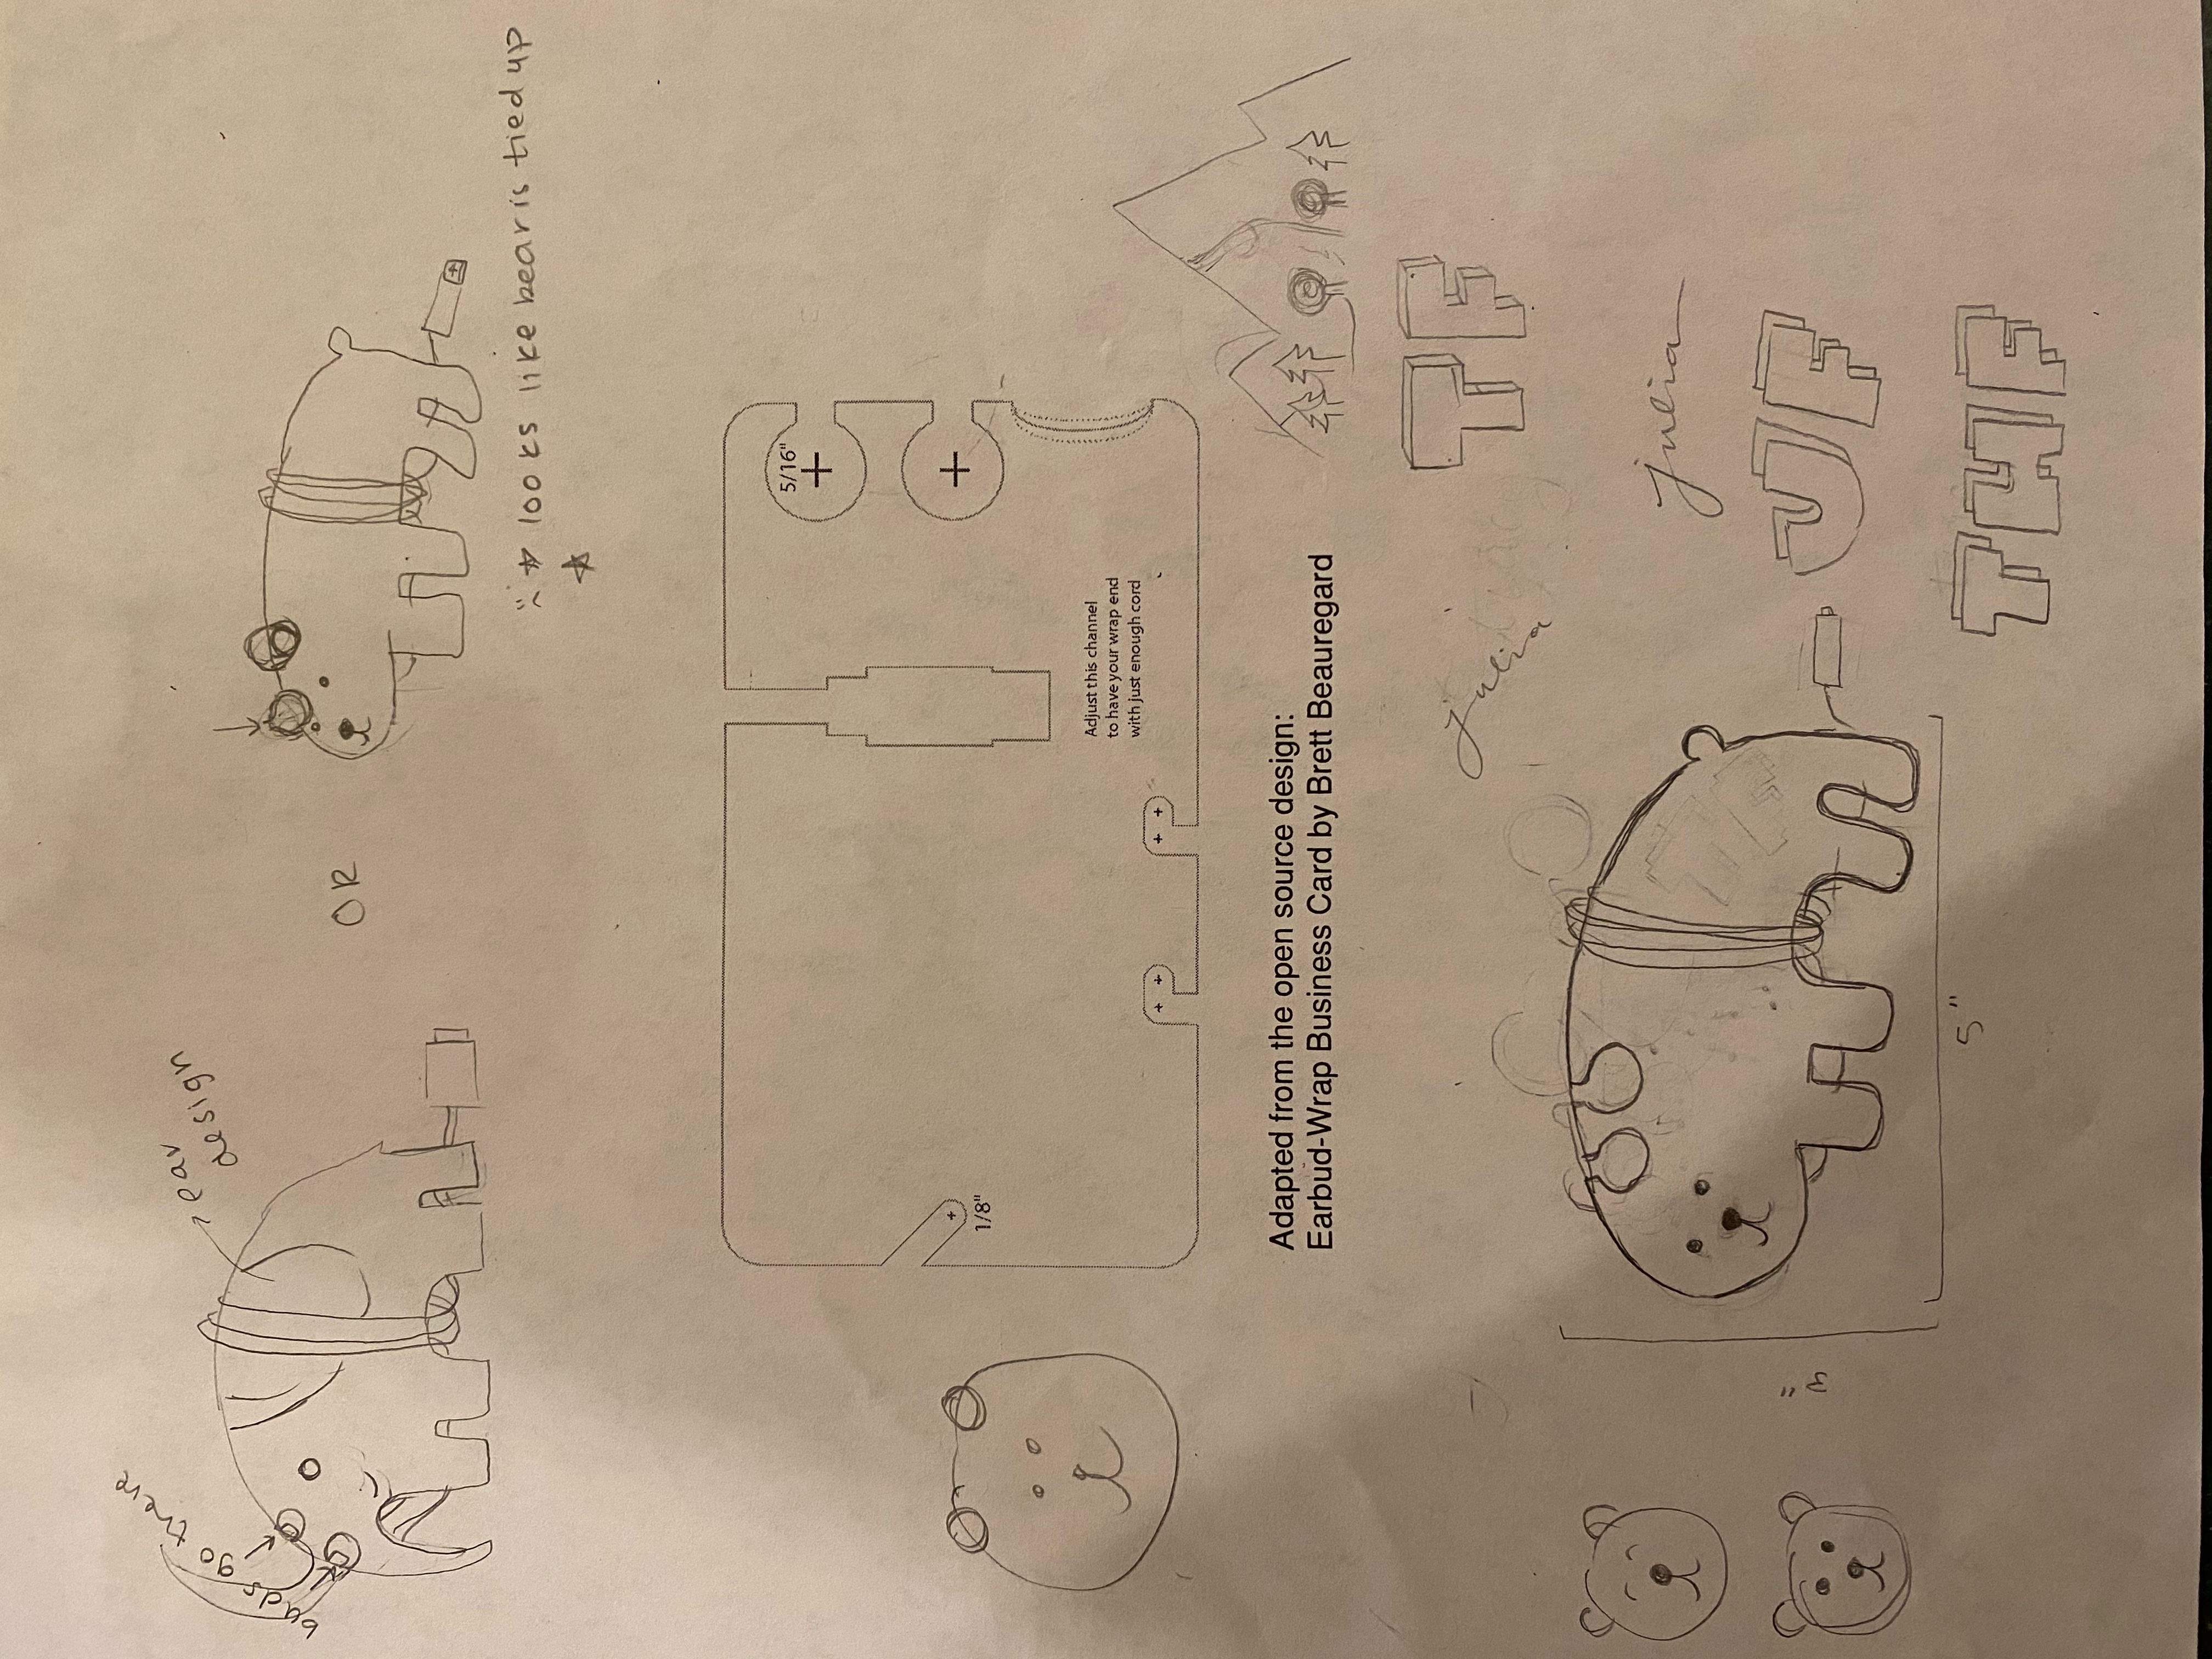 buds go there
ear
design
OR
looks like bear is tied up
5/16"
1/8"
Adjust this channel
to have your wrap end
with just enough cord
Adapted from the open source design:
Earbud-Wrap Business Card by Brett Beauregard
TF
julia
julia
3"
JF
5"
THF